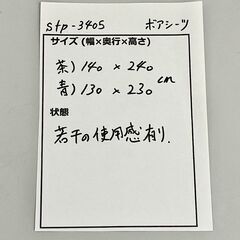 stp-3405 ボアシーツ
サイズ (幅×奥行×高さ)
茶) 140 × 240
青) 130 × 230 cm
状態
若干の使用感有り.